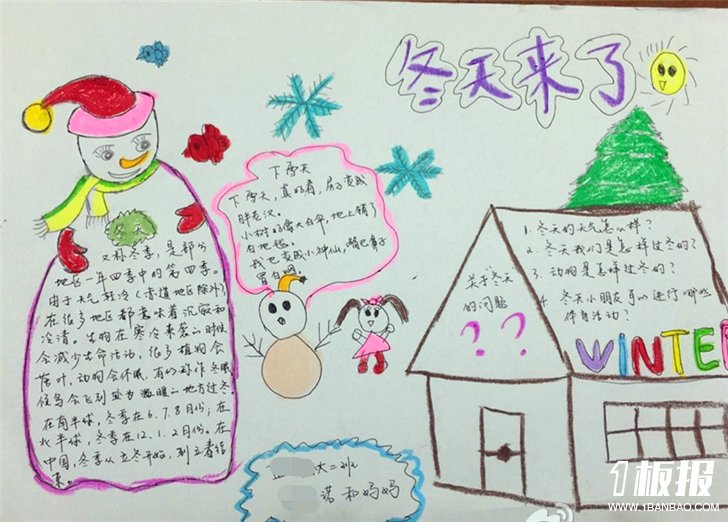 冬天来了
冬天
又称冬季，是部分
地区一年四季中的第四季。
由于天气转冷（赤道地区除外）
在很多地区都意味着沉寂和
冷清。生物在寒冷来袭的时候
会减少生命活动，很多植物会
落叶，动物会休眠，有的称作冬眠
候鸟会飞到较为温暖的地方过冬
在南半球，冬季在6.7.8月份；在
北半球，冬季在12.1.2月份。在
中国，冬季从立冬开始，到立春结
束。
下雪天
下雪天，真好看，房子变成
胖老汉。
小树好像大白伞，地上铺了
白地毯。
我也变成小神仙，嘴巴鼻子
冒白烟。
关于冬天
的问题
？？
1. 冬天的天气怎么样？
2. 冬天我们是怎样过冬的？
3. 动物是怎样过冬的？
4. 冬天小朋友可以进行哪些
体育活动？
WINTER
大二班
诺和妈妈
1板报
WWW.1BANBAO.COM